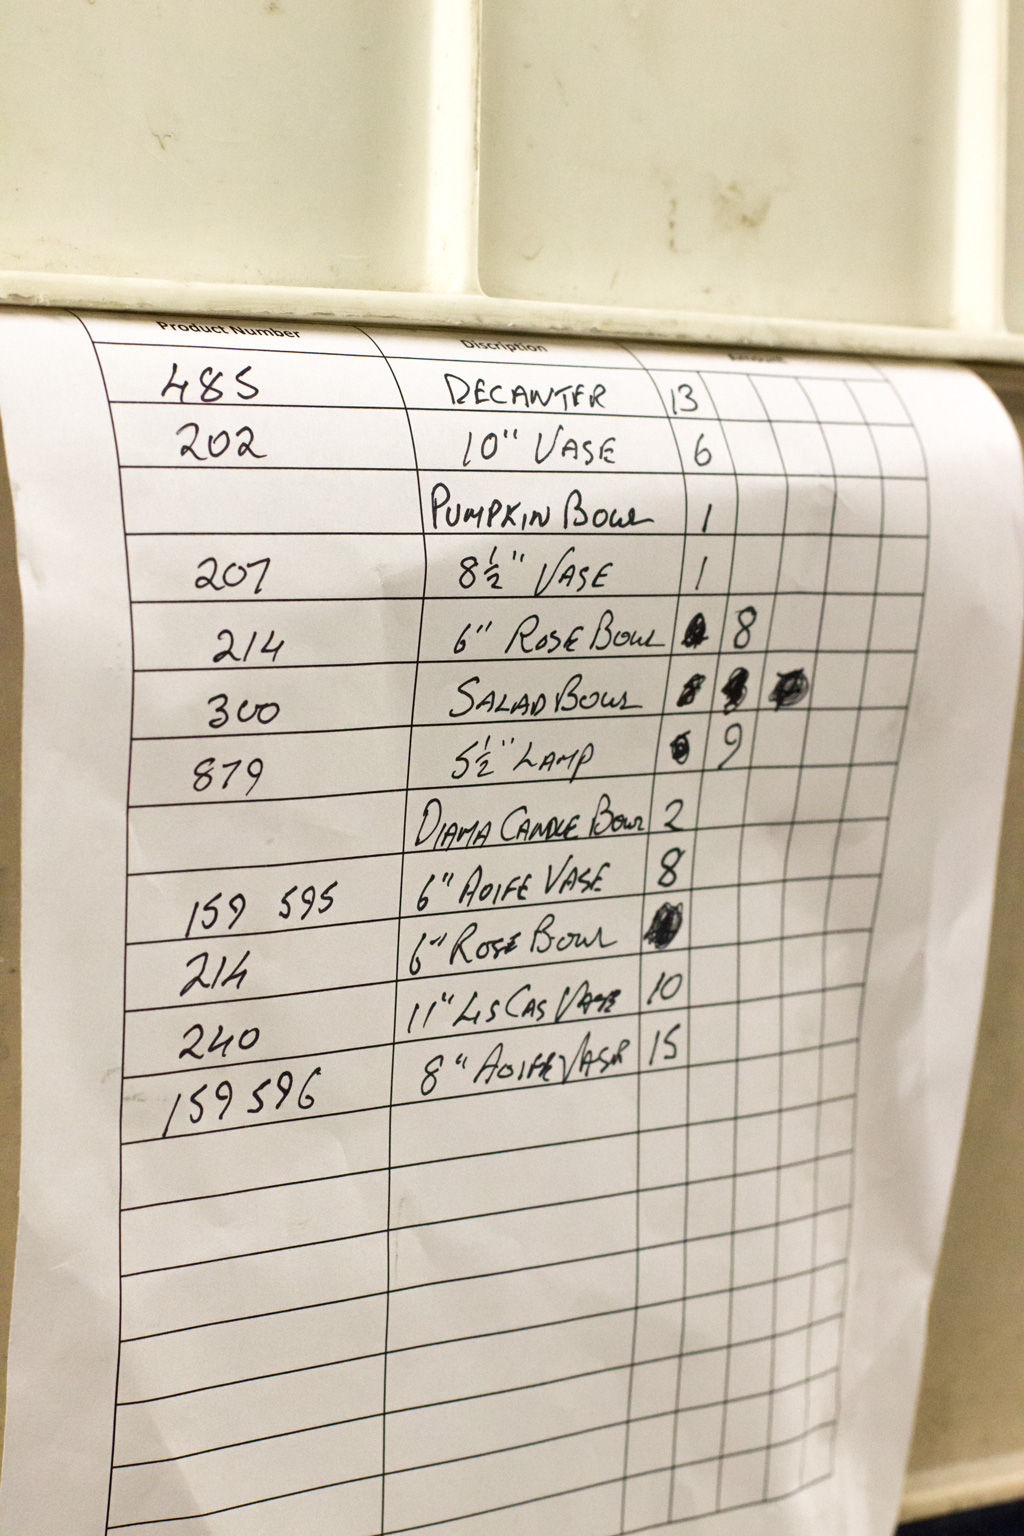 Product Number Discription Amount
485 DECANTER 13
202 10" VASE 6
PUMPKIN BOWL 1
207 8½" VASE 1
214 6" ROSE BOWL 8
300 SALAD BOWL
879 5½" LAMP 9
DIAMA CANDLE BOWL 2
159 595 6" AOIFE VASE 8
214 6" ROSE BOWL
240 11" LIS CAS VASE 10
159 596 8" AOIFE VASE 15